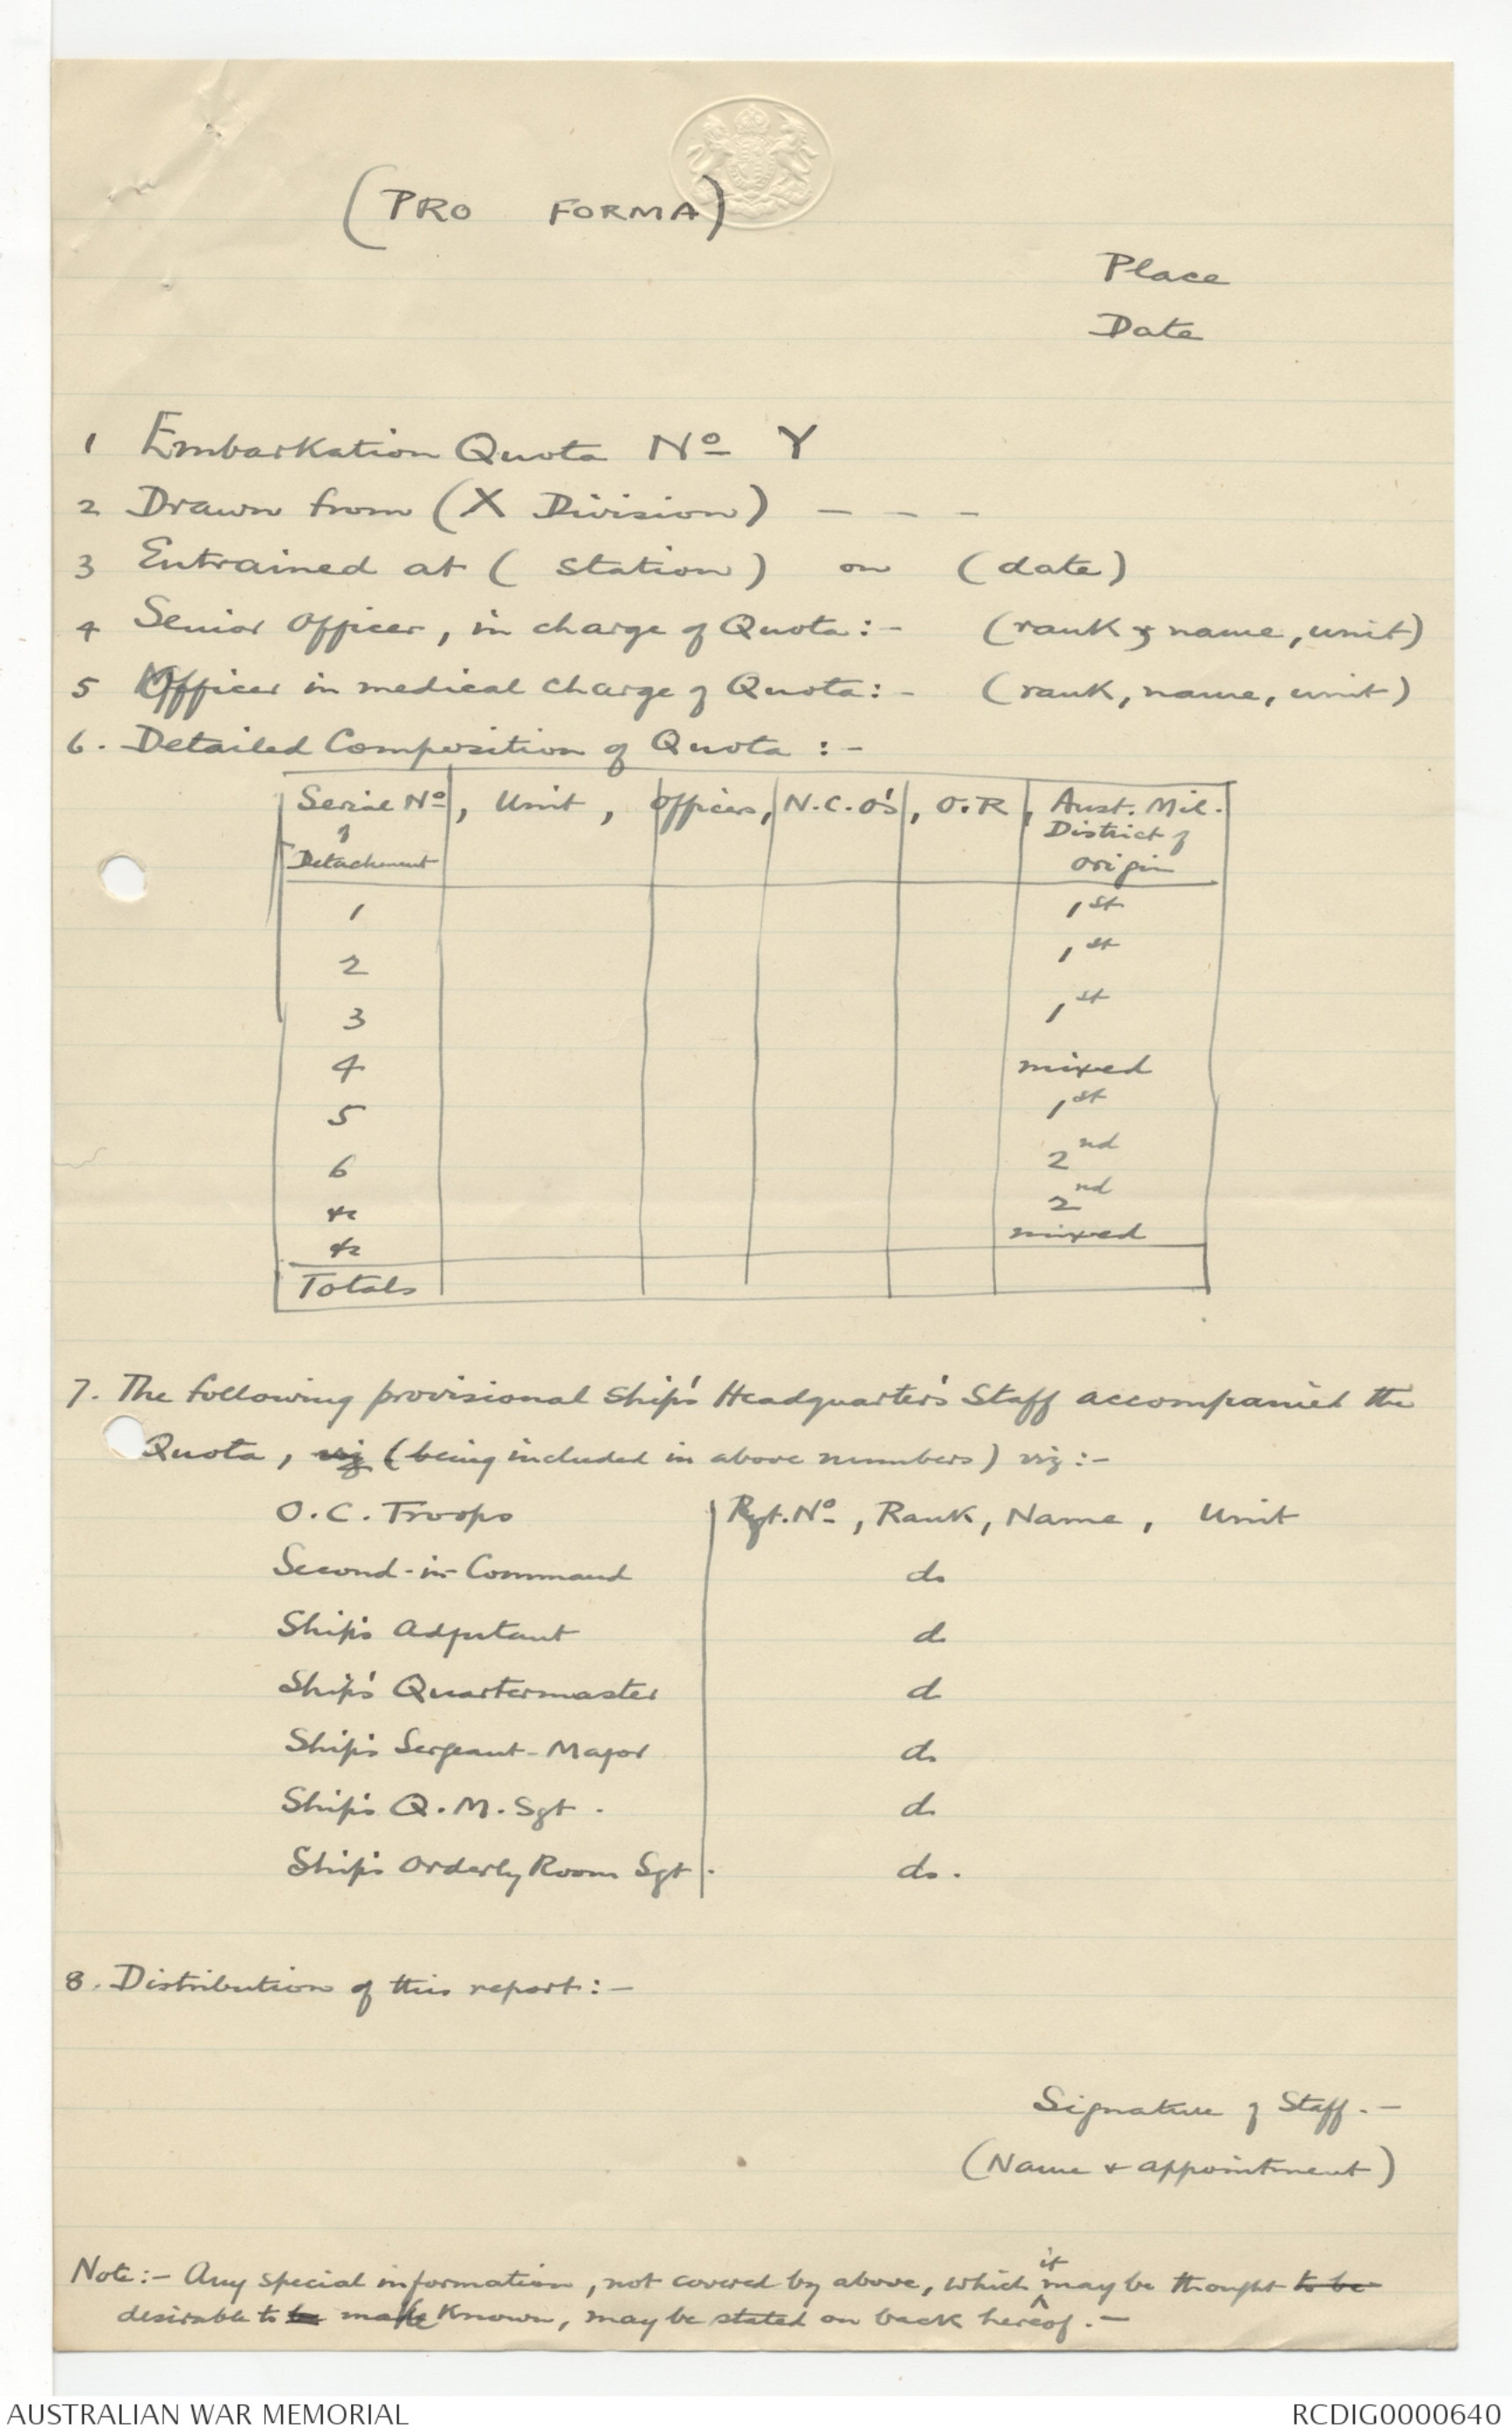 (PRO FORMA)
Place
Date
1 Embarkation Quota No Y
2 Drawn from (X Division) - - -
3 Entrained at ( station ) on (date)
4 Senior Officer, in charge of Quota:- (rank & name, unit)
5 Officer in medical charge of Quota:- (rank, name, unit)
6. Detailed Composition of Quota :-
Serial No, Unit, Officers, N.C.O's, O.R, Aust. Mil.
of District of
Detachment origin
1 1st
2 1st
3 1st
4 mixed
5 1st
6 2nd
&c 2nd
&c mixed
Totals
7. The following provisional Ship's Headquarter's Staff accompanied the
Quota, viz (being included in above numbers) viz:-
O.C. Troops Rgt. No, Rank, Name, Unit
Second-in-Command do
Ship's Adjutant do
Ship's Quartermaster do
Ship's Sergeant-Major do
Ship's Q.M. Sgt. do
Ship's Orderly Room Sgt. do.
8. Distribution of this report:-
Signature of Staff.-
(Name & appointment)
Note:- Any special information, not covered by above, which it may be thought to be
desirable to be make known, may be stated on back hereof.-
AUSTRALIAN WAR MEMORIAL RCDIG0000640